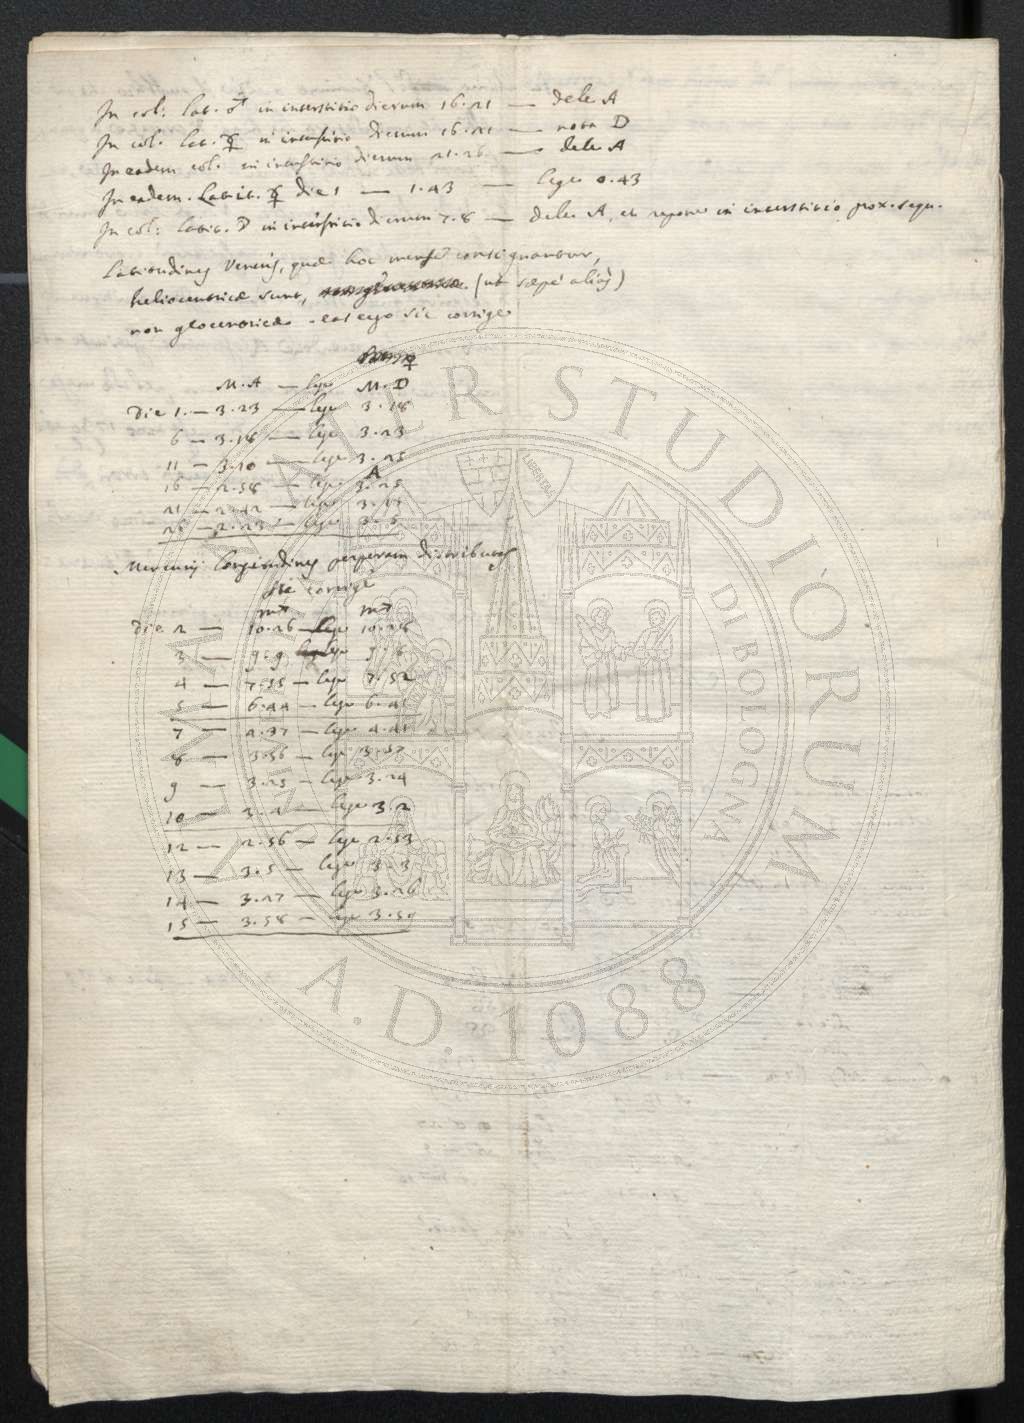 In col: lat. ♂ in interstitio dierum 16.21 — dele A
In col. lat. ☿ in interstitio dierum 16.21 — nota D
In eadem col. in interstitio dierum 21.26 — dele A
In eadem. Latit. ☿ die 1 — 1.43 — lege 0.43
In col: latit. ☽ in interstitio dierum 7.8 — dele A, et repone in interstitio prox. sequ.
Latitudines Veneris, quae hoc mense consignantur,
heliocentricae sunt, (ut saepè aliàs)
non geocentricae. eas ergo sic corrige
♀
M.A — lege M.D
Die 1. — 3.23 — lege 3.18
6 — 3.18 — lege 3.23
11 — 3.10 — lege 3.25
A
16 — 2.58 — lege 3.25
21 — 2.42 — lege
26 — 2.23 — lege
Mercurij Longitudines perperam distributas
sic corrige
♍ ♍
Die 2 — 10.26 — lege
3 — 9.9 lege
4 — 7.55 — lege 7.52
5 — 6.44 — lege 6.41
7 — 4.37 — lege 4.41
8 — 3.56 — lege 3.57
9 — 3.23 — lege 3.24
10 — 3.2 — lege 3.2
12 — 2.56 — lege 2.53
13 — 3.5 — lege 3.3
14 — 3.27 — lege 3.26
15 — 3.58 — lege
ALMA MATER STUDIORUM
UNIVERSITÀ DI BOLOGNA
LIBERTAS
A.D. 1088